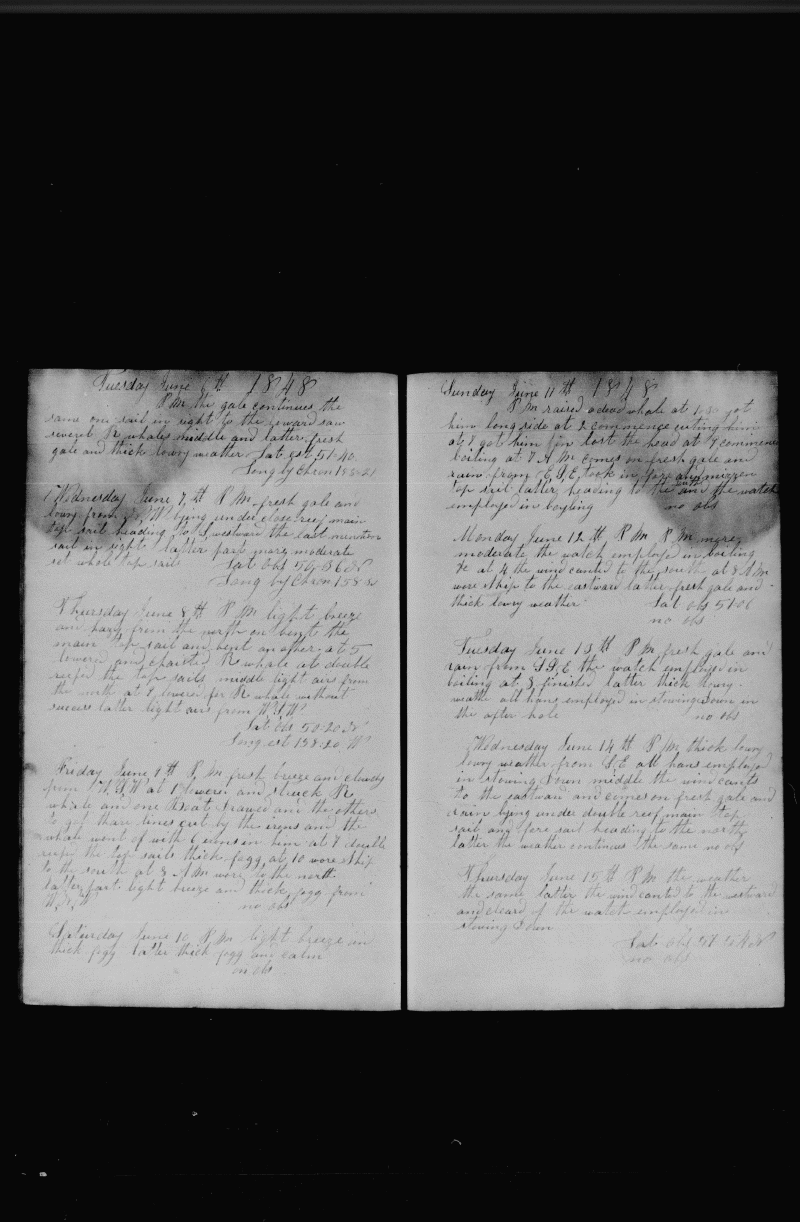 Tuesday June 6 th 1848
P M the gale continues the
same one sail in sight to the leward saw
severel R whales middle and latter fresh
gale and thick lowry weather Lat est 51-40
Long by Chron 158-21
Wednesday June 7 th P M fresh gale and
lowry from W lying under close reef main
top sail heading to westward the last mention
sail in sight latter part more moderate
set whole top sails Lat obs 50- N
Long by Chron 158-
Thursday June 8 th P M light breeze
and hazy from the north on bent the
main top sail and bent another at 5
lowered and chaised R whale at 6 double
reefed the top sails middle light airs from
the north at 8 lowered for R whale without
success latter light airs from W S W
Lat obs 50-20 N
Long est 158-20 W
Friday June 9 th P M fresh breeze and cloudy
from W S W at 1 lowered and struck R
whale and one boat drawed and the others
2 got thare lines cut by the irons and the
whale went of with 6 irons in him at 7 double
reefed the top sails thick fogg at 10 wore ship
to the south at 3 A M wore to the north
latter part light breeze and thick fogg from
W S W no obs
Saturday June 10 P M light breeze an
thick fogg latter thick fogg and calm
on obs
Sunday June 11 th 1848
P M raised a dead whale at 1-30 got
him long side at 2 commence cuting him
at 8 got him in lost the head at 7 commence
boiling at 7 A M comes on fresh gale and
rain from E S E took in fore and mizzen
top sail latter heading to the and the watch
employed in boyling no obs
Monday June 12 th P M P M more
moderate the watch employed in boiling
&c at 4 the wind canted to the south at 8 A M
wore ship to the eastward latter fresh gale and
thick lowry weather Lat obs 51-06
no obs
Tuesday June 13 th P M fresh gale and
rain from S S E the watch employed in
boiling at 3 finished latter thick lowry
weathe all hans employed in stowing down in
the after hole no obs
Wednesday June 14 th P M thick lowry
lowry weather from S E all hans employed
in stowing down middle the wind cants
to the eastward and comes on fresh gale and
rain lying under double reef main top
sail and fore sail heading to the north
latter the weather continues the same no obs
Thursday June 15 th P M the weather
the same latter the wind canted to the westward
and cleard of the watch employed in
stowing down
Lat obs 51- N
no obs